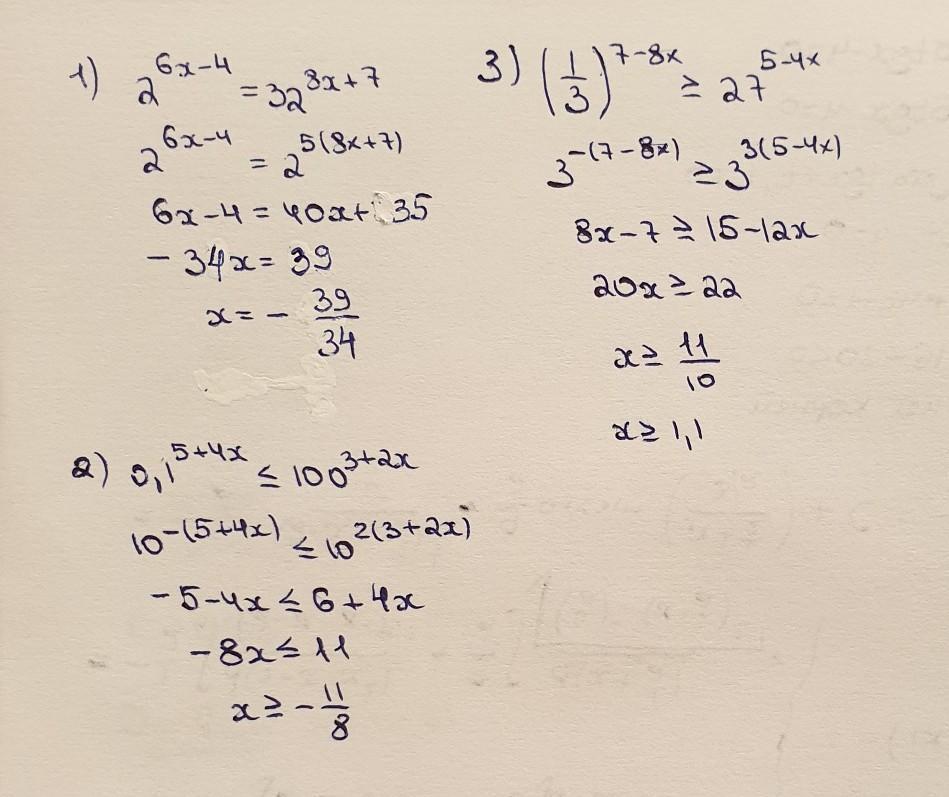 1) 2^{6x-4} = 32^{8x+7}
2^{6x-4} = 2^{5(8x+7)}
6x-4 = 40x+35
-34x = 39
x = -\frac{39}{34}
2) 0,1^{5+4x} ≤ 100^{3+2x}
10^{-(5+4x)} ≤ 10^{2(3+2x)}
-5-4x ≤ 6+4x
-8x ≤ 11
x ≥ -\frac{11}{8}
3) (\frac{1}{3})^{7-8x} ≥ 27^{5-4x}
3^{-(7-8x)} ≥ 3^{3(5-4x)}
8x-7 ≥ 15-12x
20x ≥ 22
x ≥ \frac{11}{10}
x ≥ 1,1